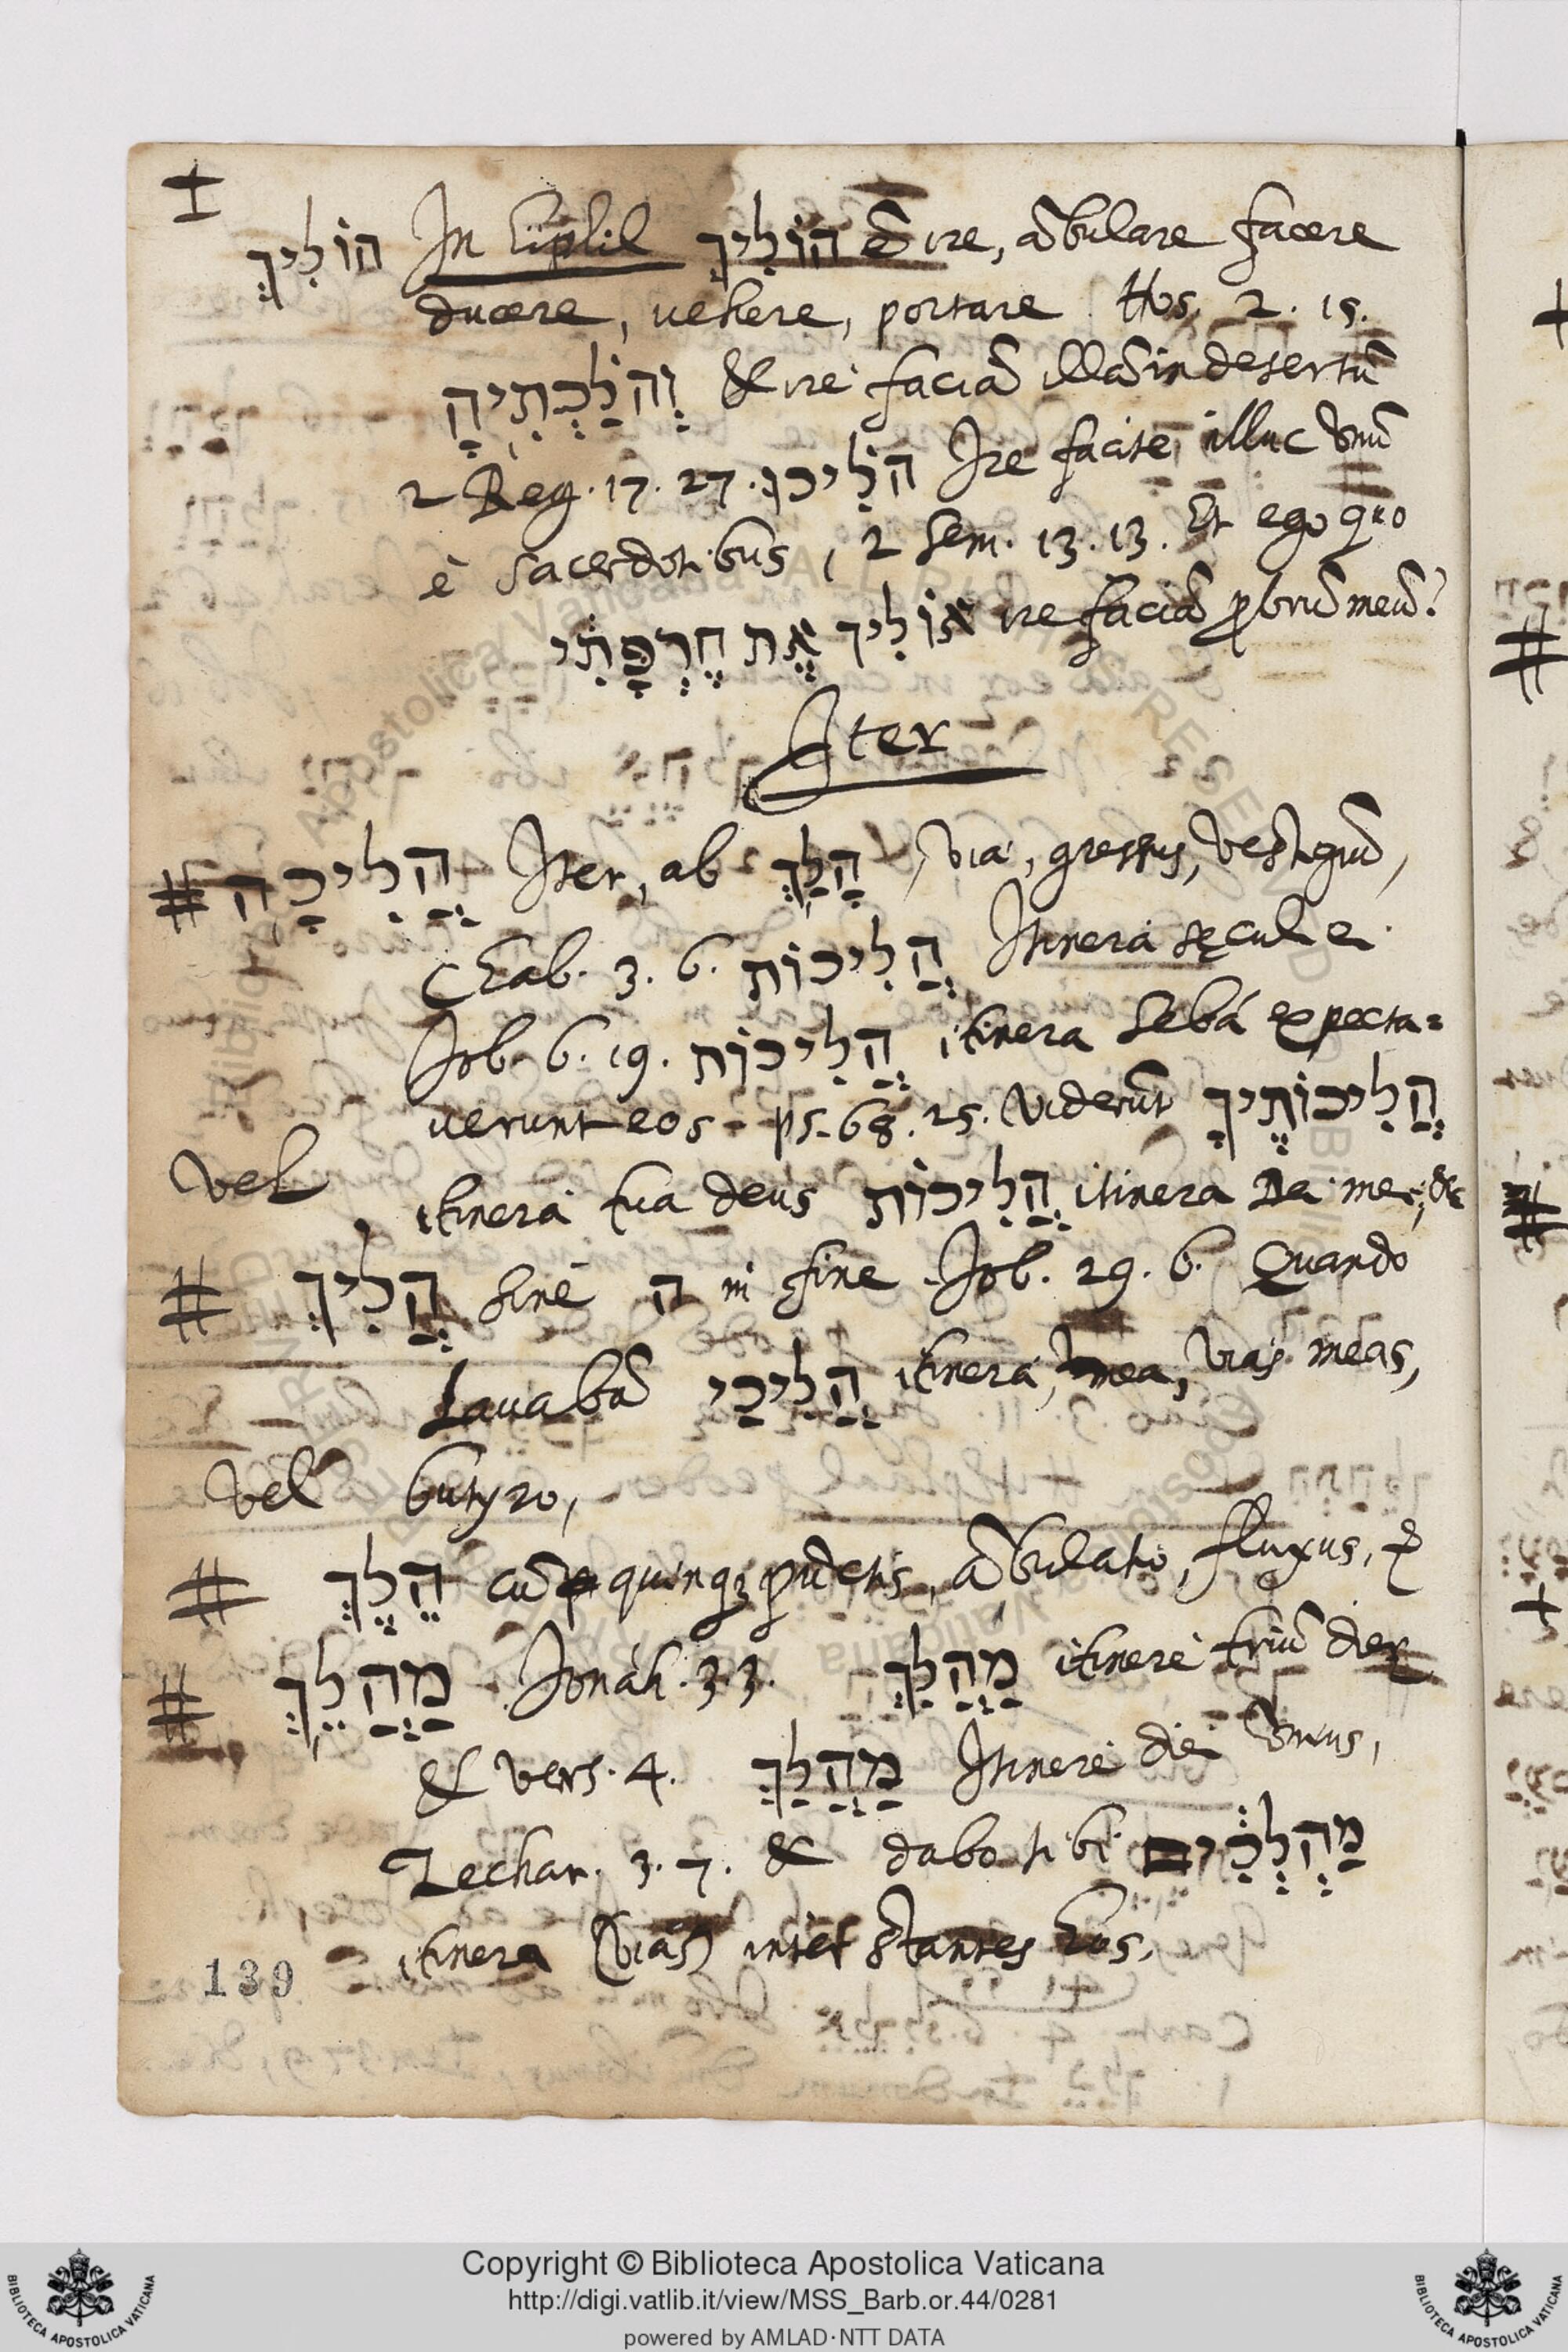 I
הוֹלִיךְ In hiphil הוֹלִיךְ ẽ ire, ãbulare facere
ducere, uehere, portare Hos. 2. 15.
וְהֹלַכְתִּיהָ & ire faciã illã in desertũ
2 Reg. 17. 27. הֹלִיכוּ Ire facite illuc vnũ
è sacerdotibus, 2 Sem. 13. 13. Et ego quo
אוֹלִיךְ אֶת חֶרְפָּתִי ire faciã ꝓbrũ meũ?
Iter
# הֲלִיכָה Iter, ab הָלַךְ, via, gressus, vestigiũ,
Chab. 3. 6. הֲלִיכוֹת Itinera sęculi ei
Job. 6. 19. הֲלִיכוֹת itinera Sebá expecta=
uerunt eos ps. 68. 25. Viderũt הֲלִיכוֹתֶיךָ
Vel itinera tua deus הֲלִיכוֹת itinera Da mei, &c
# הֲלִיךְ sine ה in fine Job. 29. 6. Quando
Lauabã הֲלִיכַי itinera mea, vias meas,
Vel butyro,
# הֵלֶךְ cũ quinqꝫ pũctis, ãbulatio, fluxus,
# מַהֲלֵךְ Jonáh. 3. 3. מַהֲלַךְ itinere triũ dier
& vers. 4. מַהֲלַךְ Itinere diei vnius,
Zechar. 3. 7. & dabo tibi מַהְלְכִים
itinera (vias) inter stantes hos.
139
Copyright © Biblioteca Apostolica Vaticana
http://digi.vatlib.it/view/MSS_Barb.or.44/0281
powered by AMLAD·NTT DATA
BIBLIOTECA APOSTOLICA VATICANA
BIBLIOTECA APOSTOLICA VATICANA